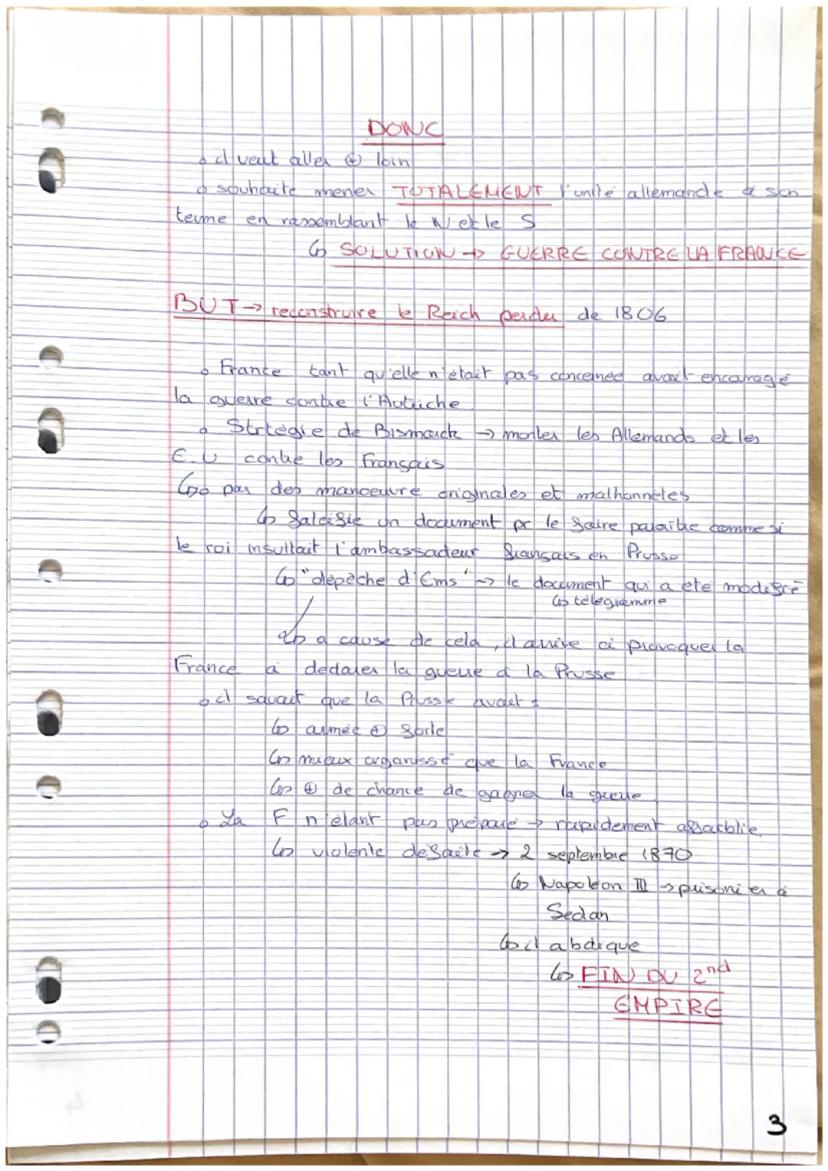 DONC
o il veut aller ⊕ loin
o souhaite mener TOTALEMENT l'unité allemande à son
terme en rassemblant le N et le S
↳ SOLUTION → GUERRE CONTRE LA FRANCE
BUT → reconstruire le Reich perdu de 1806
o France tant qu'elle n'était pas concernée avait encouragé
la guerre contre l'Autriche
o Strtégie de Bismarck → monter les Allemands et les
E.U contre les Français
↳ par des manoeuvre originales et malhonnêtes
↳ falcifie un document pr le faire paraitre comme si
le roi insultait l'ambassadeur français en Prusse
↳ "dépêche d'Ems" → le document qui a été modifié
↳ télégramme
↳ à cause de cela, il arrive à provoquer la
France à déclarer la guerre à la Prusse
o il savait que la Prusse avait :
↳ armée ⊕ forte
↳ mieux organissé que la France
↳ ⊕ de chance de gagner la guerre
o La F n'étant pas préparé → rapidement affaiblie
↳ violente défaite → 2 septembre 1870
↳ Napoléon III → prisonier à
Sedan
↳ il abdique
↳ FIN DU 2nd
EMPIRE
3